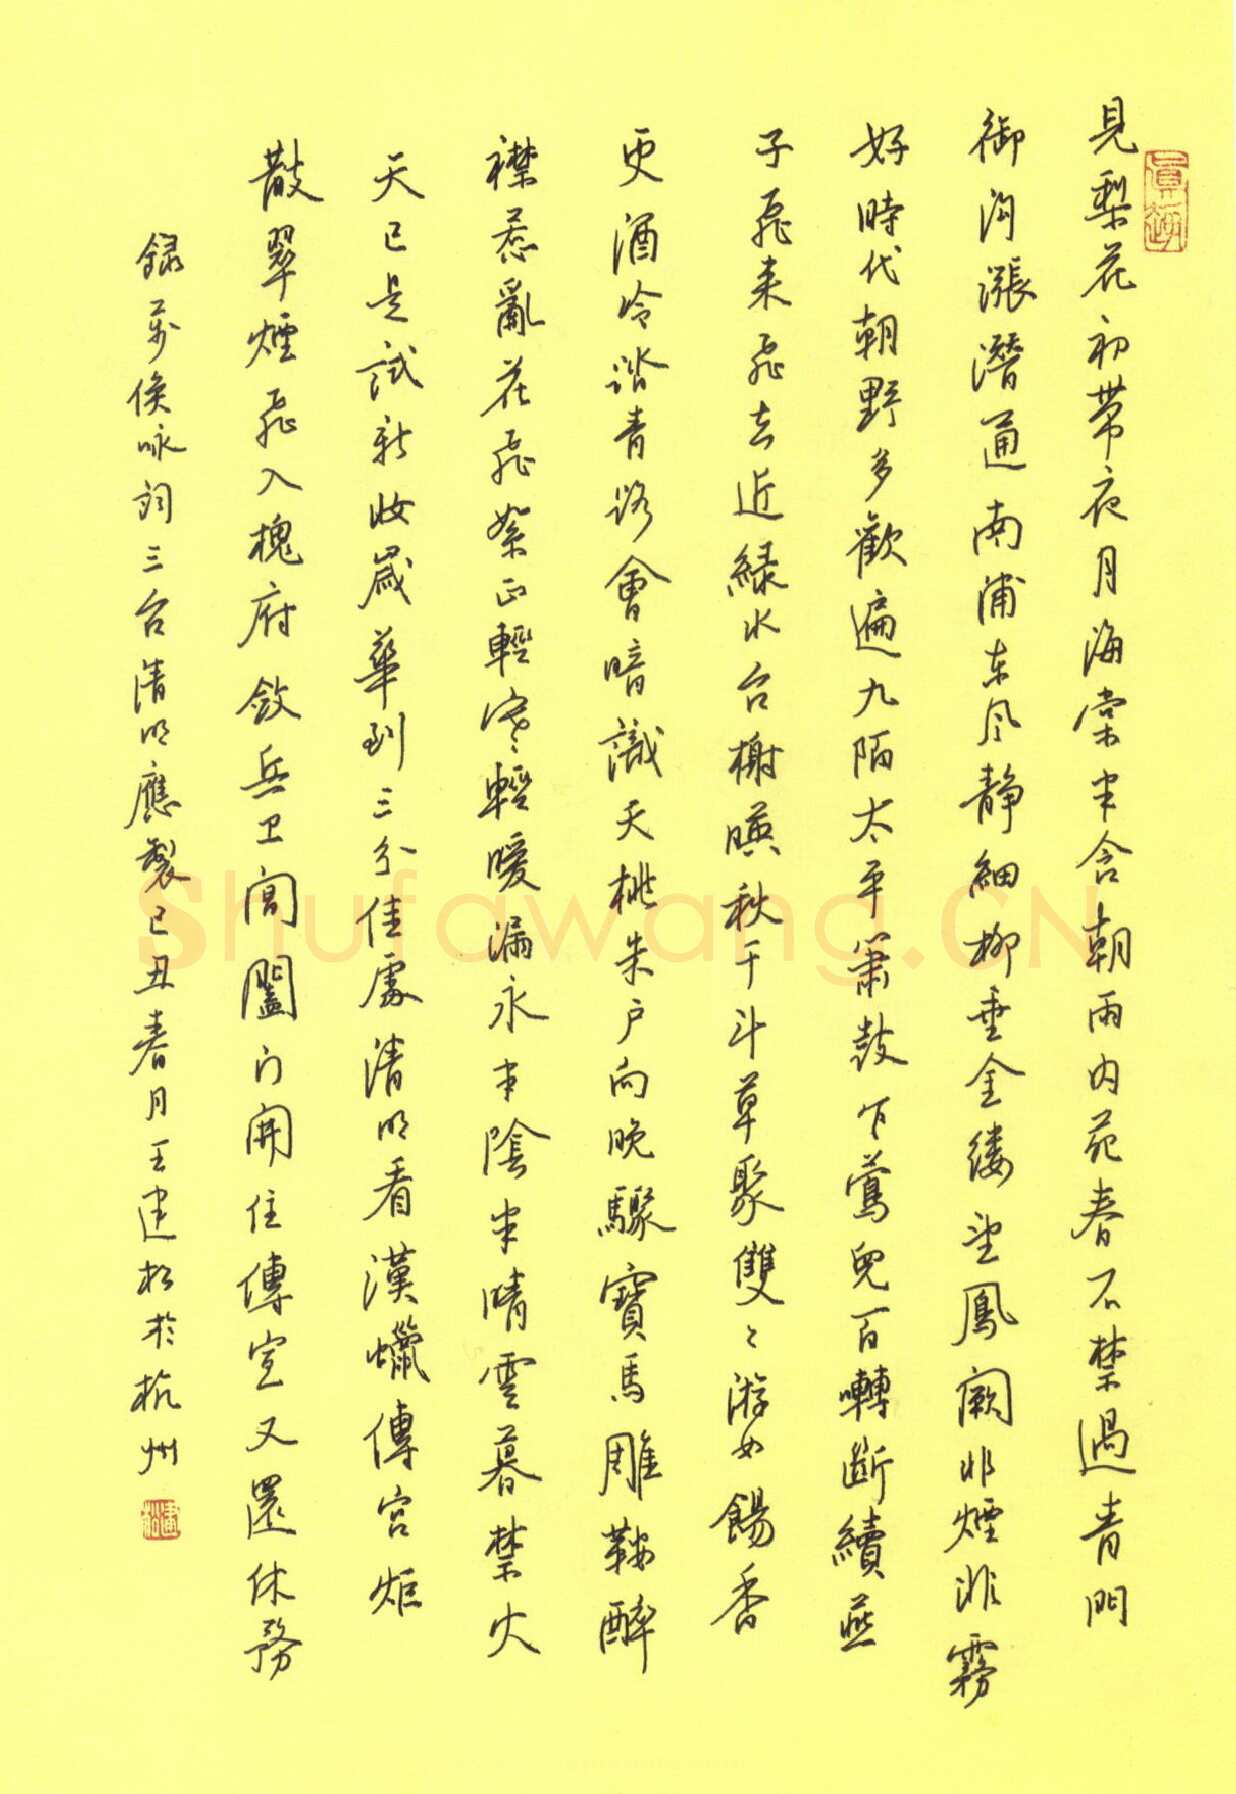 見梨花初帶夜月海棠半含朝雨内苑春不禁過青門
御沟漲潛通南浦东风静細柳垂金缕望鳳闕非煙非霧
好時代朝野多歡遍九陌太平簫鼓乍鶯兒百囀断續燕
子飛来飛去近緑水台榭暎秋千斗草聚雙々游女餳香
更酒冷踏青路會暗識夭桃朱户向晚驟寳馬雕鞍醉
襟惹亂花飛絮正輕寒輕暖漏永半陰半晴雲暮禁火
天已是試新妝歲華到三分佳處清明看漢蠟傳宫炬
散翠煙飛入槐府斂兵卫閶闔门開住傳宣又還休務
録萬俟咏詞三台清明應製己丑春月王建松於杭州
真趣
建松
Shufawang.CN